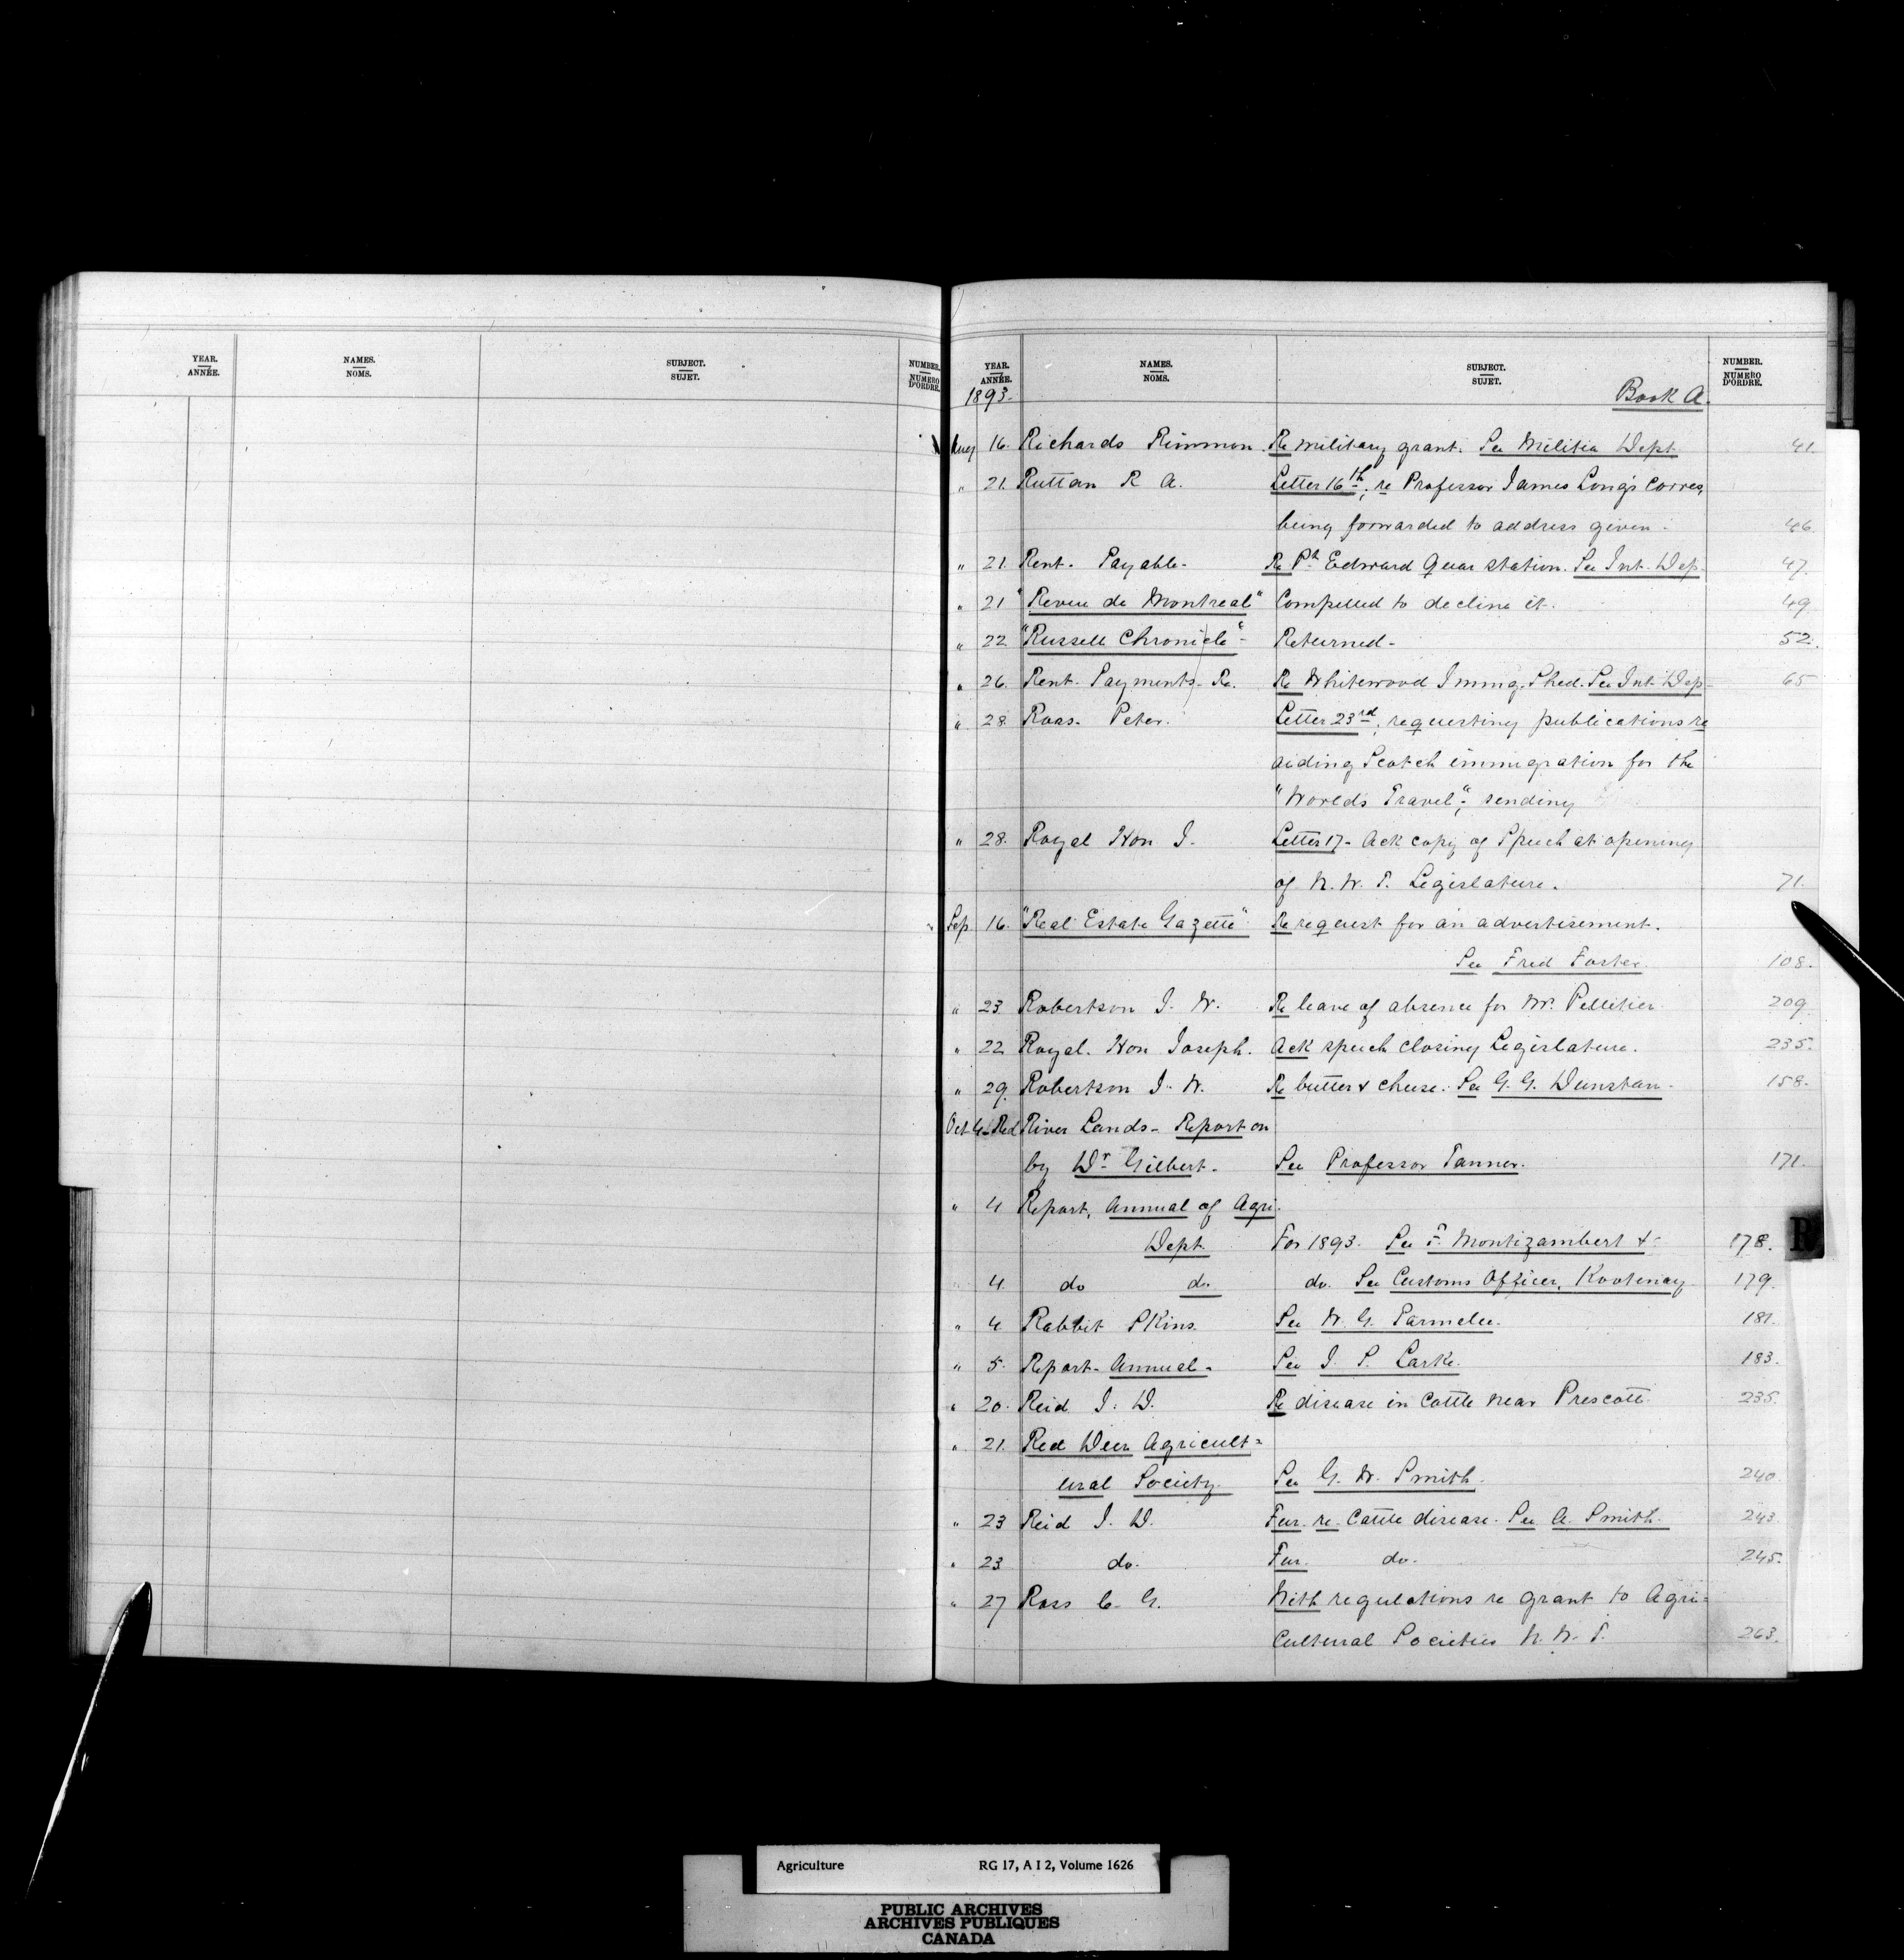 YEAR. ANNÉE. NAMES. NOMS. SUBJECT. SUJET. NUMBER. NUMERO D'ORDRE.
YEAR. ANNÉE. NAMES. NOMS. SUBJECT. SUJET. NUMBER. NUMERO D'ORDRE.
1893. Book A.
Aug 16. Richards Rimmon. Re military grant. See Militia Dept 41.
" 21. Ruttan R A. Letter 16th, re Professor James Long's corres,
being forwarded to address given - 46
" 21. Rent. Payable. Re Pt Edward Quar station. See Int. Dep. 47.
" 21 "Revue de Montreal" Compelled to decline it. 49
" 22 "Russell Chronicle" - Returned - 52.
" 26. Rent. Payments. Re. Re Whitewood Immig. Shed. See Int. Dep - 65
" 28. Ross. Peter. Letter 23rd, requesting publications re
aiding Scotch immigration for the
"Worlds Travel"; sending
" 28. Royal Hon J. Letter 17 - Ack copy of Speech at opening
of N. W. T. Legislature. 71.
Sep 16. "Real Estate Gazette" Re request for an advertisement.
See Fred Foster 108.
" 23 Robertson J. W. Re leave of absence for Mr. Pelletier 209
" 22 Royal. Hon Joseph. Ack speech closing Legislature. 235.
" 29. Robertson J. W. Re butter & cheese. See G. G. Dunstan - 158.
Oct 4 - Red River Lands - Report on
by Dr Gilbert. See Professor Tanner. 171.
" 4 Report, Annual of Agri.
Dept. For 1893. See F. Montizambert & - 178.
4. do do. do. See Customs Officer, Kootenay 179.
" 4 Rabbit Skins See W. G. Parmelee. 181.
" 5. Report - Annual - See J. S. Larke. 183.
" 20. Reid J. D. Re disease in cattle near Prescott. 235.
" 21. Red Deer Agricult=
ural Society. See G. W. Smith. 240.
" 23 Reid J. D. Fur. re. Cattle disease. See A. Smith. 243.
" 23 do. Fur. do. 245.
" 27 Ross C. G. With regulations re grant to Agri=
cultural Societies N. W. T. 263.
R
Agriculture RG 17, A I 2, Volume 1626
PUBLIC ARCHIVES
ARCHIVES PUBLIQUES
CANADA